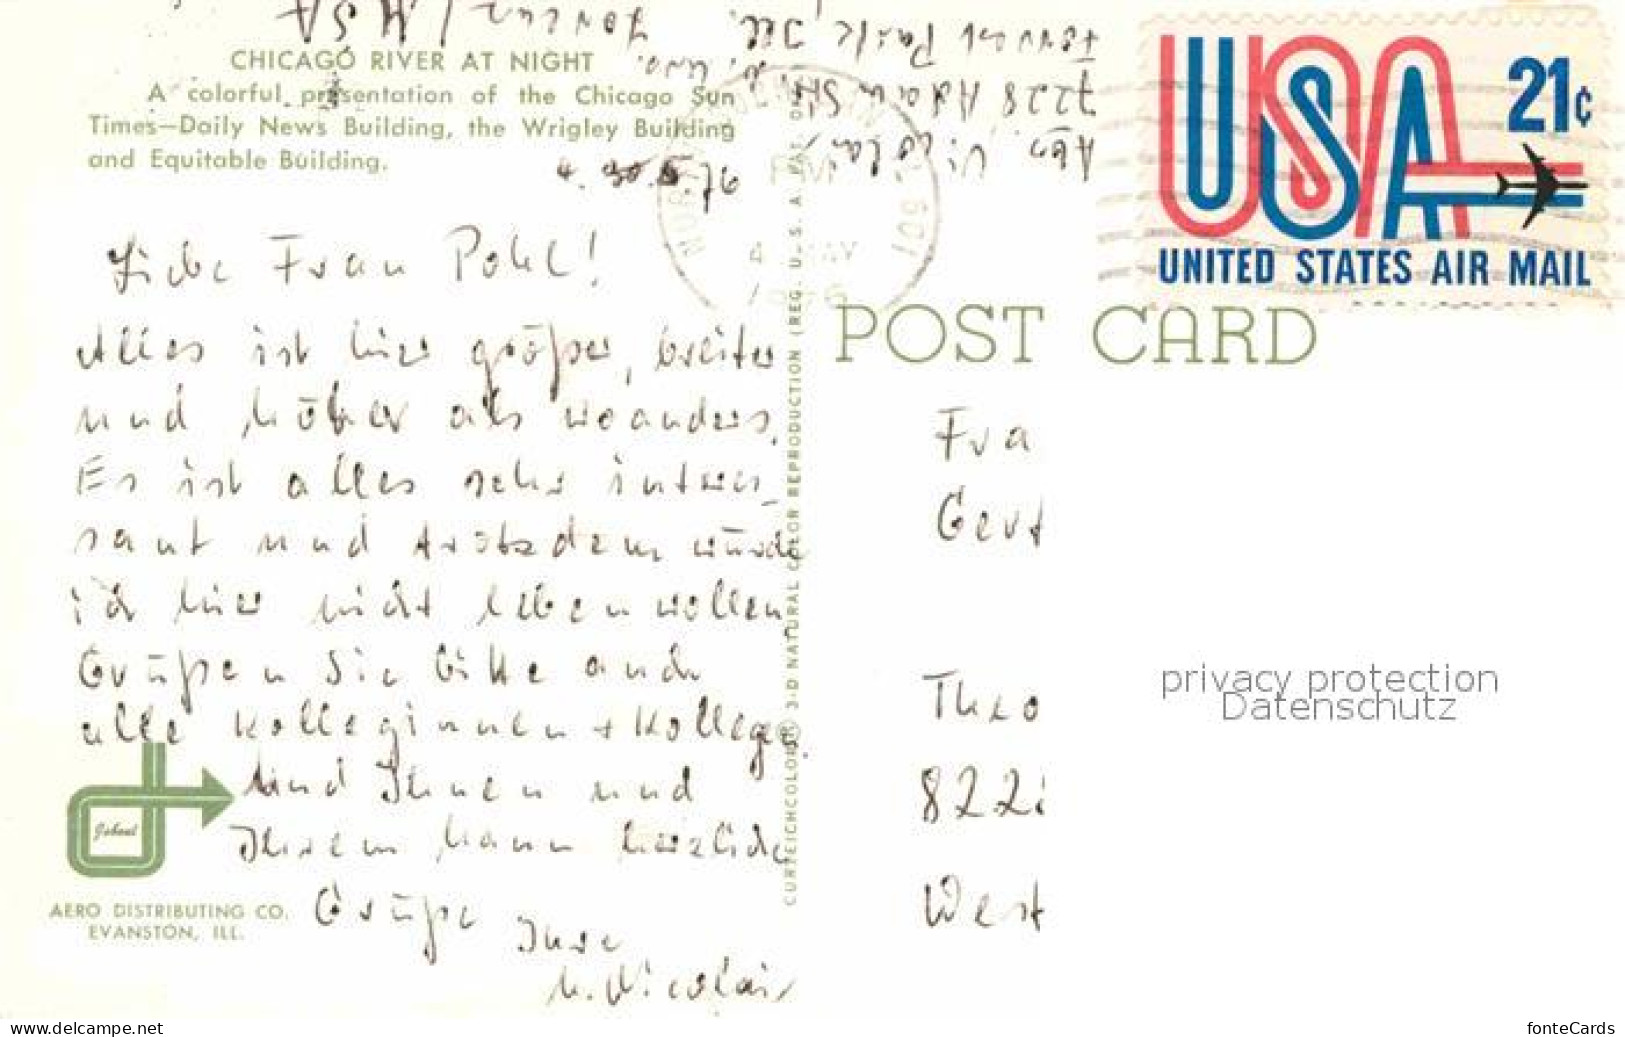 CHICAGO RIVER AT NIGHT
A colorful presentation of the Chicago Sun
Times—Daily News Building, the Wrigley Building
and Equitable Building.
Liebe Frau Pohl!
Alles ist hier größer, breiter
und höher als woanders.
Es ist alles sehr interes-
sant und trotzdem würde
ich hier nicht leben wollen.
Grüßen Sie bitte auch
alle Kolleginnen + Kollegen.
Und Ihnen und
Ihrem Mann herzliche
Grüße Ihre
U. Nicolai
AERO DISTRIBUTING CO.
EVANSTON, ILL.
CURTEICHCOLOR® 3-D NATURAL COLOR REPRODUCTION (REG. U. S. A. PAT. OFF.)
Abs. U. Nicolai,
7228 Adams Str.
Forest Park, Ill.
USA
4 MAY
601
USA
21¢
UNITED STATES AIR MAIL
POST CARD
Fra
Gert
Theo
822
West
privacy protection
Datenschutz
www.delcampe.net
fonteCards